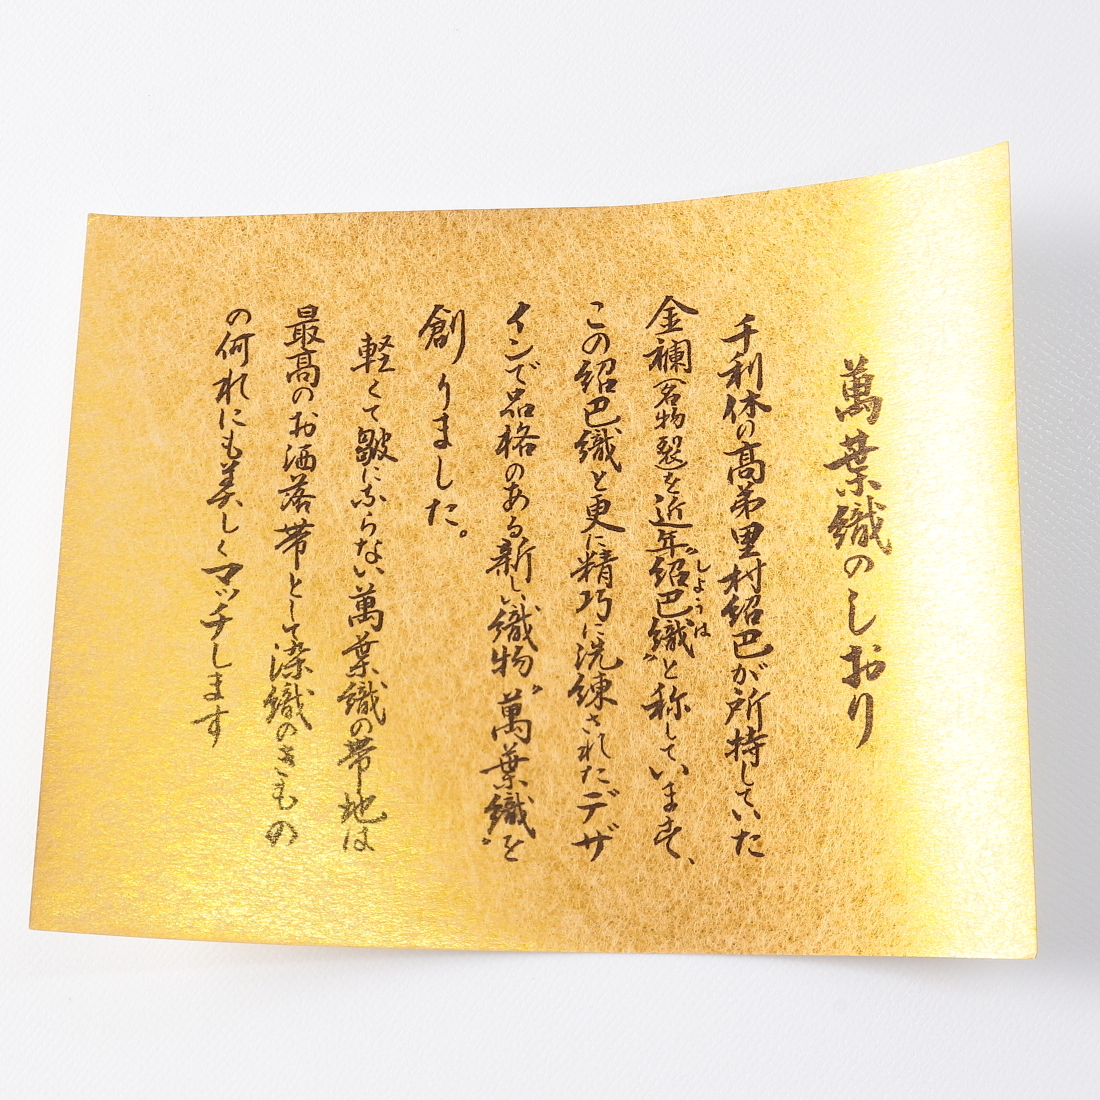 萬葉織のしおり
千利休の高弟里村紹巴が所持していた
金襴(名物裂)を近年〝紹巴織〟と称しています、
しようは
この紹巴織を更に精巧に洗練されたデザ
インで品格のある新しい織物〝萬葉織〟を
創りました。
軽くて皺にならない萬葉織の帯地は
最高のお洒落帯として染織のきもの
の何れにも美しくマッチします